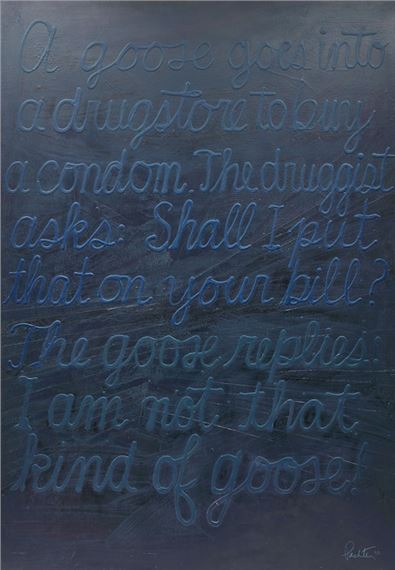 A goose goes into
a drugstore to buy
a condom. The druggist
asks: Shall I put
that on your bill?
The goose replies:
I am not that
kind of goose!